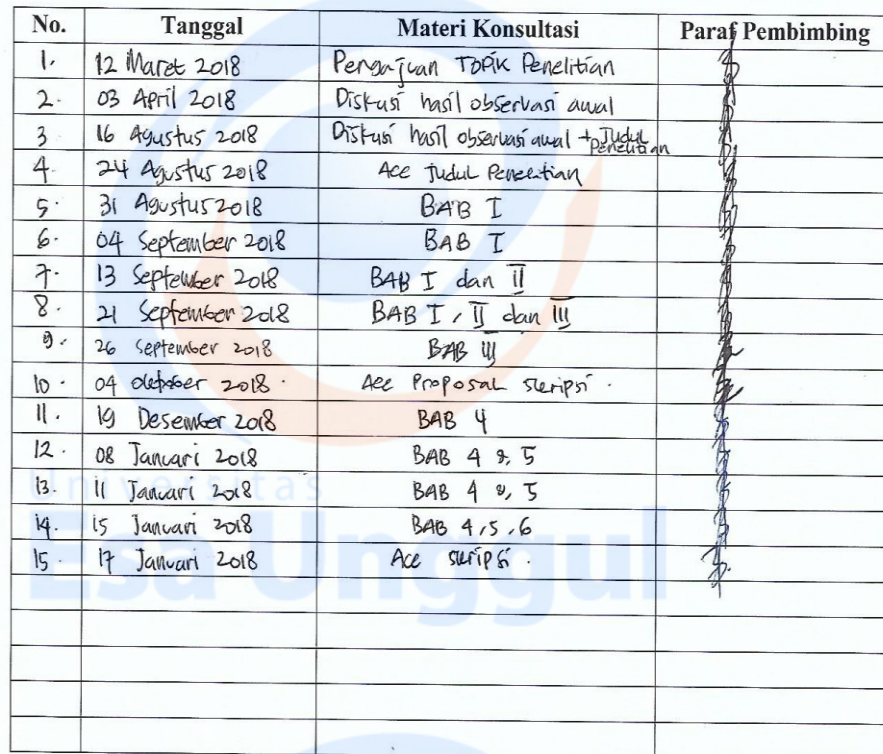 No. Tanggal Materi Konsultasi Paraf Pembimbing
1. 12 Maret 2018 Pengajuan Topik Penelitian
2. 03 April 2018 Diskusi hasil observasi awal
3 16 Agustus 2018 Diskusi hasil observasi awal + Judul penelitian
4. 24 Agustus 2018 Acc Judul Penelitian
5. 31 Agustus 2018 BAB I
6. 04 September 2018 BAB I
7. 13 September 2018 BAB I dan II
8. 21 September 2018 BAB I, II dan III
9. 26 September 2018 BAB III
10. 04 Oktober 2018. Acc Proposal skripsi.
11. 19 Desember 2018 BAB 4
12. 08 Januari 2018 BAB 4 & 5
13. 11 Januari 2018 BAB 4 & 5
14. 15 Januari 2018 BAB 4, 5, 6
15. 17 Januari 2018 Acc skripsi.
Universitas
Esa Unggul